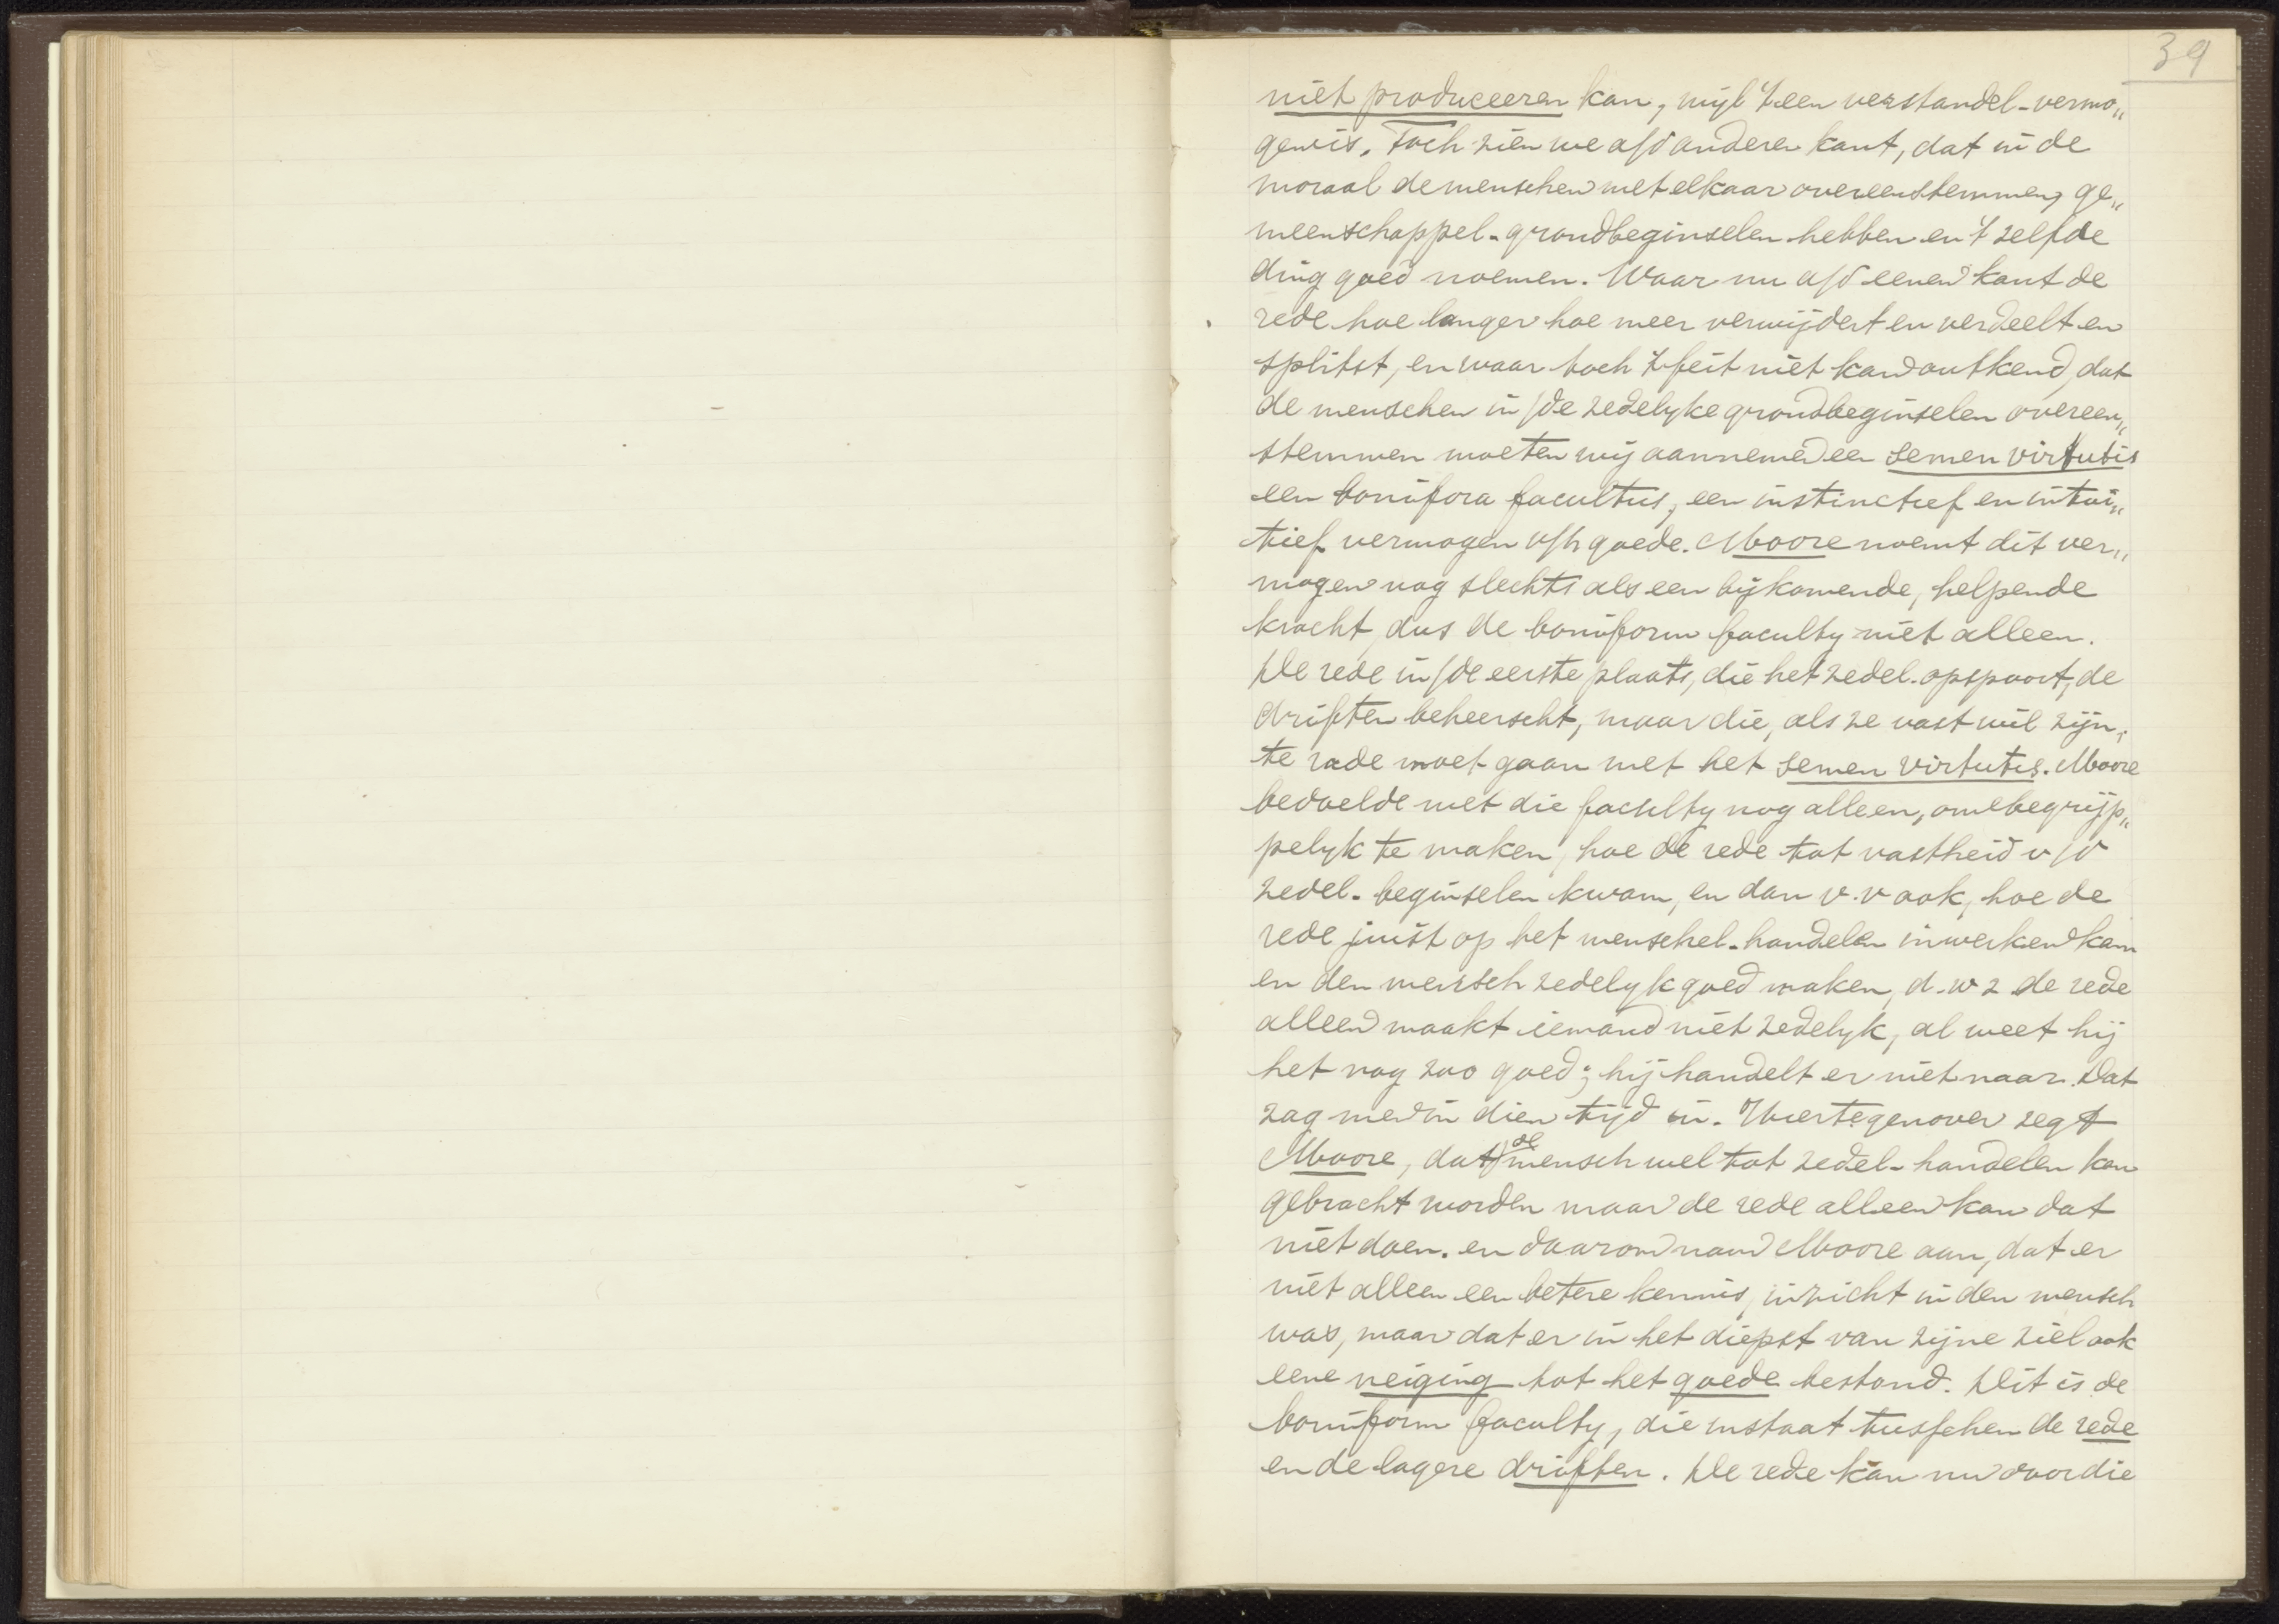 39
niet produceeren kan, wijl 't een verstandel-vermo„
gen is. Toch zien we a/d anderen kant, dat in de
moraal de menschen met elkaar overeenstemmen, ge„
meenschappel- grondbeginselen hebben en 't zelfde
ding goed noemen. Waar nu a/d eenen kant de
rede hoe langer hoe meer verwijdert en verdeelt en
splitst, en waar toch 't feit niet kan ontkend, dat
de menschen in /de zedelyke grondbeginselen overeen„
stemmen moeten wij aannemen een semen virtutis
een bonifora facultus, een instinctief en intui„
tief vermogen v/h goede. Moore noemt dit ver„
mogen nog slechts als een bijkomende, helpende
kracht, dus de boniform faculty niet alleen.
De rede in /de eerste plaats, die het zedel. opspoort, de
driften beheerscht, maar die, als ze vast wil zijn,
te rade moet gaan met het semen virtutis. Moore
bedoelde met die faculty nog alleen, om e begrijp„
pelyk te maken, hoe de rede tot vastheid v/d
zedel- beginselen kwam, en dan v.v ook, hoe de
rede juist op het menschel- handelen inwerken kan
en den mensch zedelyk goed maken, d.w z de rede
alleen maakt iemand niet zedelyk, al weet hij
het nog zoo goed; hij handelt er niet naar. Dat
zag men in dien tijd in. Hiertegenover zegt
Moore, dat de mensch wel tot zedel- handelen kan
gebracht worden maar de rede alleen kan dat
niet doen. en daarom nam Moore aan, dat er
niet alleen een betere kennis, inzicht in den mensch
was, maar dat er in het diepst van zijne ziel ook
eene neiging tot het goede bestond. Dit is de
boniform faculty, die instaat tusschen de rede
en de lagere driften. De rede kan nu door die